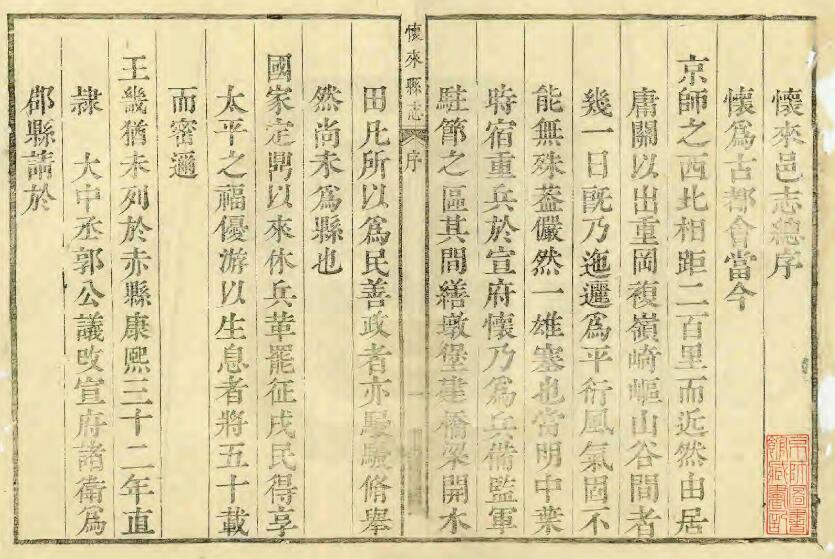 懷來邑志總序
懷爲古都會當今
京師之西北相距二百里而近然由居
庸關以出重岡複嶺崎嶇山谷間者
幾一日旣乃迤邐爲平衍風氣固不
能無殊葢儼然一雄塞也當明中葉
時宿重兵於宣府懷乃爲兵備監軍
駐節之區其間繕墩堡建橋梁開水
懷來縣志 序 一
田凡所以爲民善政者亦駸駸脩舉
然尚未爲縣也
國家定鼎以來休兵革罷征戍民得享
太平之福優游以生息者將五十載
而密邇
王畿猶未列於赤縣康熙三十二年直
隸 大中丞郭公議改宣府諸衛爲
郡縣請於